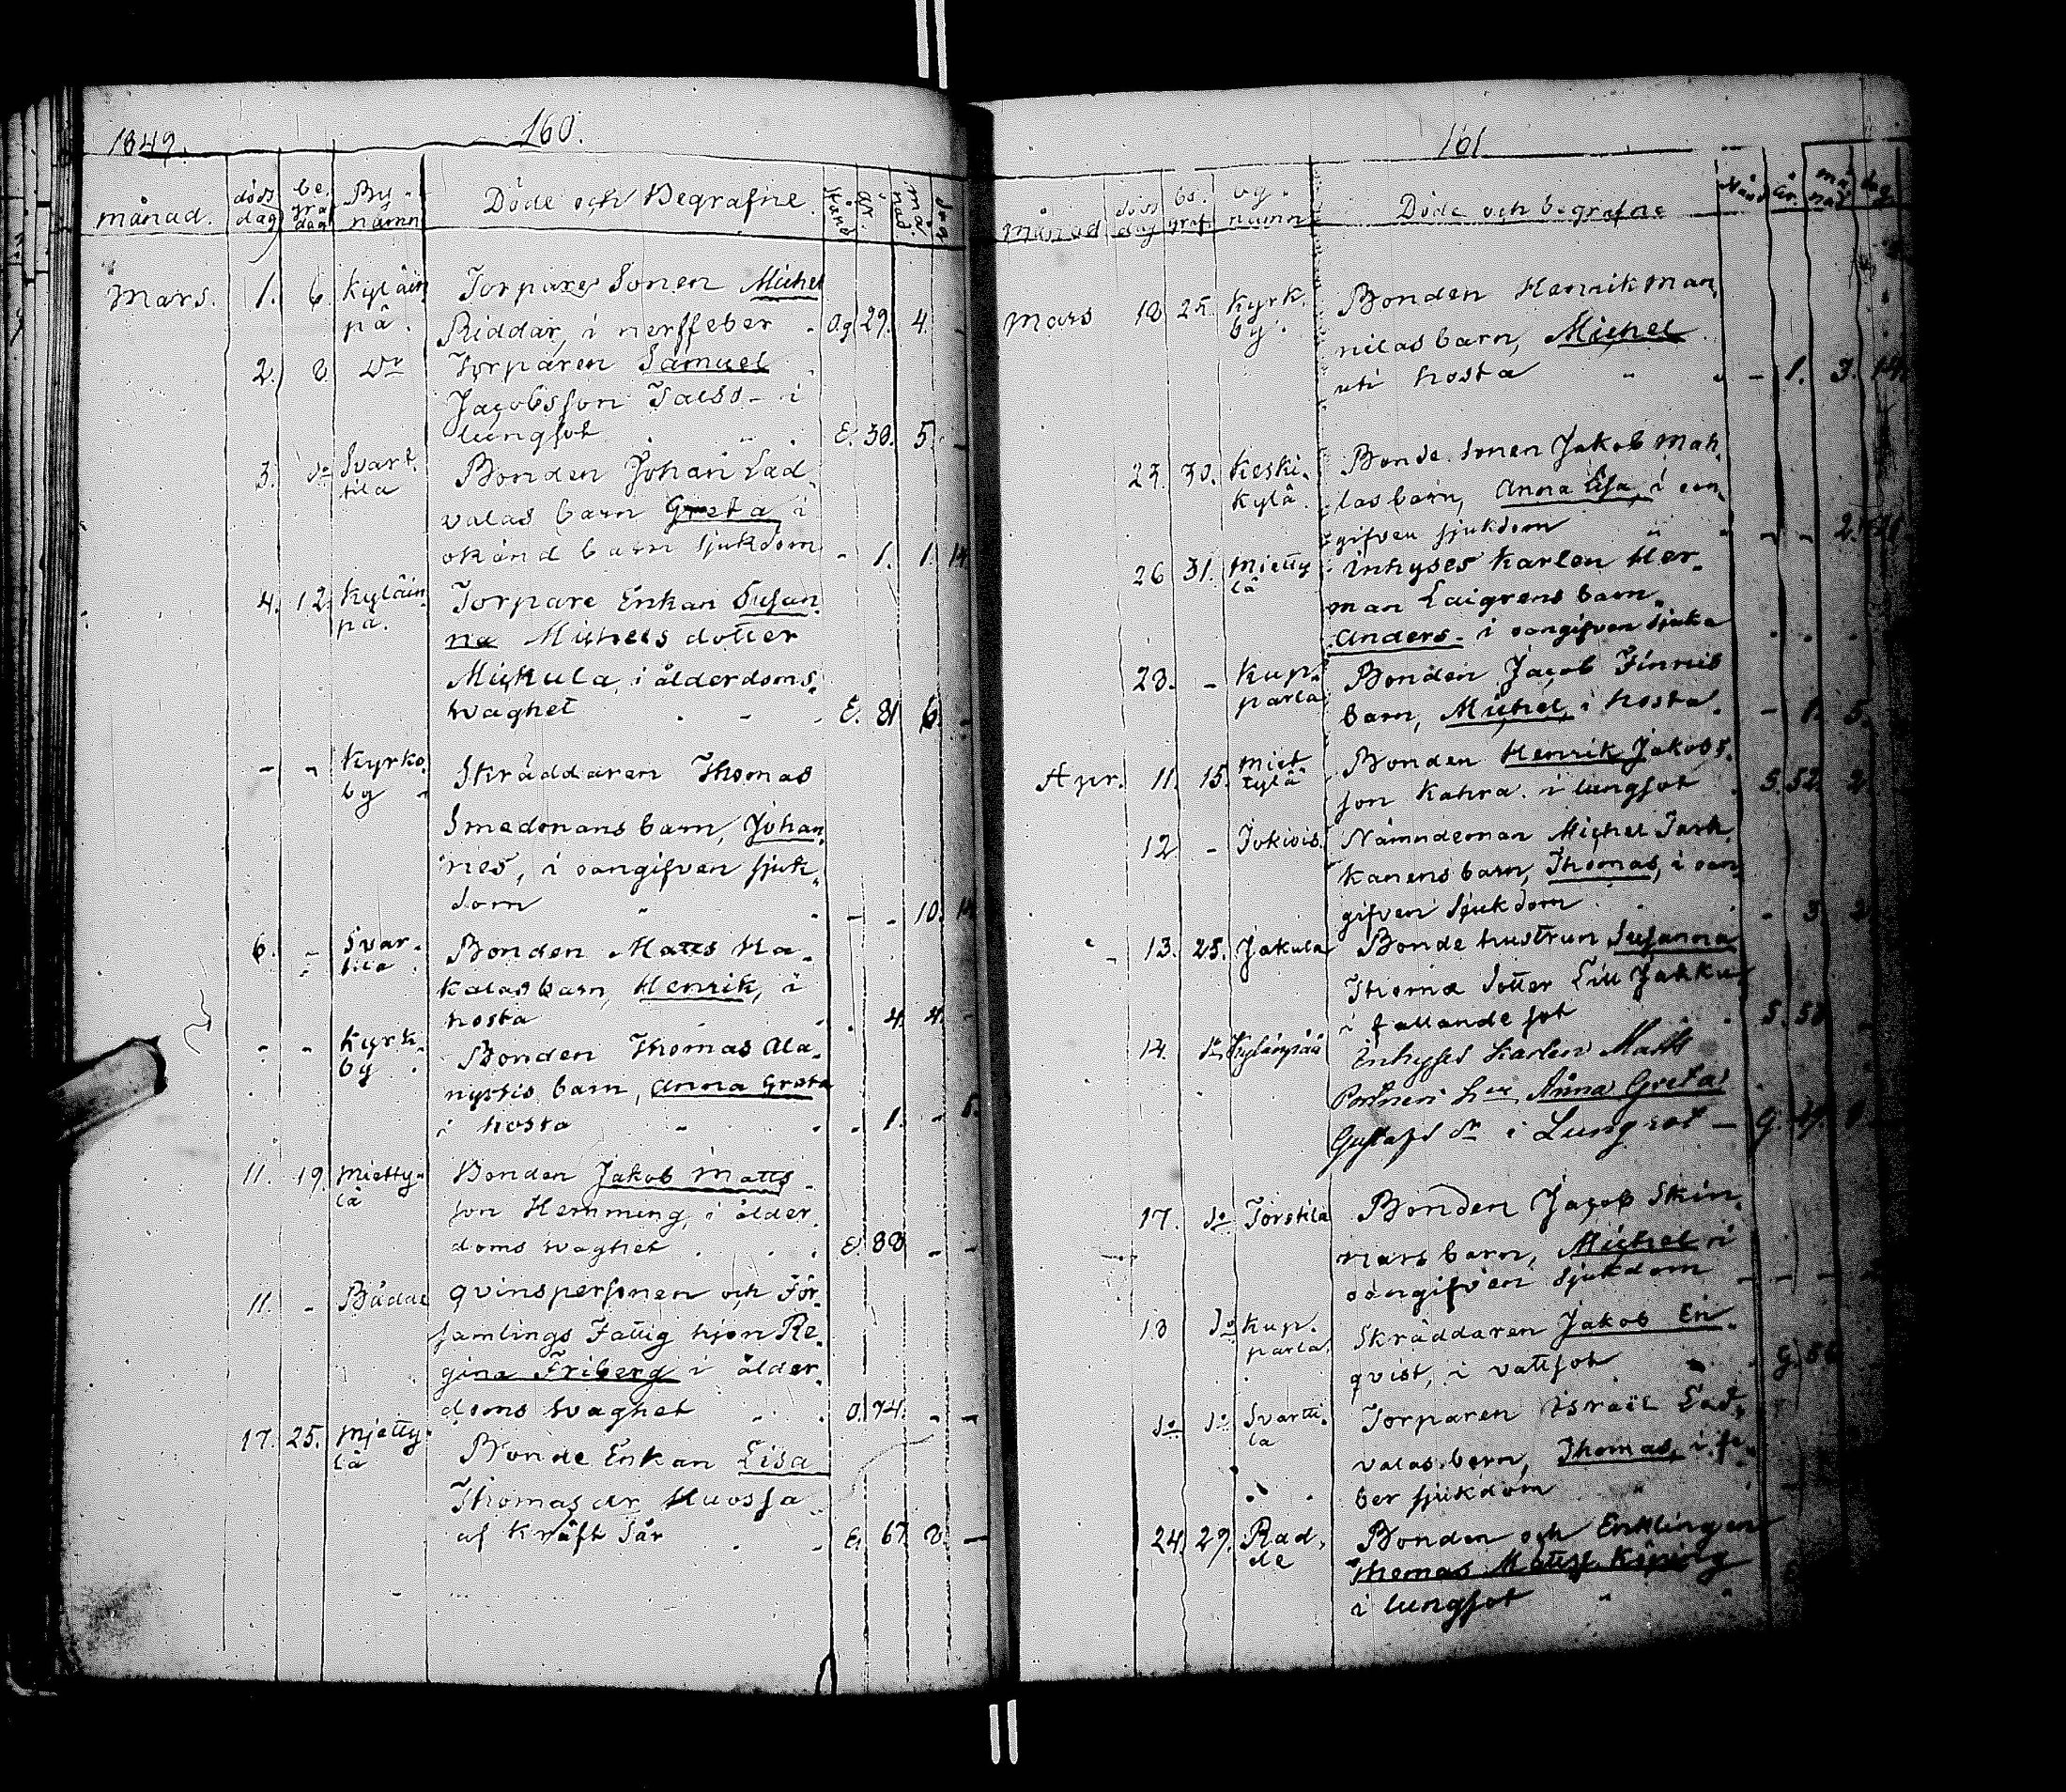 1849.
160.
månad. döds dag be. gra dag By. namn Döde och Begrafne. Stånd år. månad dag
Mars. 1. 6. Kyläin Torpare Sonen Michel
pä. Riddar, i nerffeber Og 29. 4. -
2. 8. Do Torparen Samuel
Jacobsson - i
lungsot E. 38. 5. -
3. do Svart. Bonden Johan Lad
tila valas barn Greta i
okänd barn sjukdom - 1. 1. 14.
4. 12. Kyläin. Torpare Enkan Susan.
pä. na Michels dotter
Mickula, i ålderdoms.
svaghet E. 81 6. -
- - Kyrko. Skräddaren Thomas
by
Smedmans barn, Johan
nes, i oangifven sjuk.
dom - - 10. 14.
6. - Svar. Bonden Matts Ha.
tila kalas barn, Henrik, i
hosta - 4. 4. -
- - Kyrk. Bonden Thomas Ala.
by nyrkis barn, Anna Greta
i hosta - 1. -
11. 19. Mietty. Bonden Jakob Matts.
lä son Hemming, i ålder.
doms svaghet E. 88 - -
11. - Rådde qvinspersonen och För.
samlings Fattig hjon Re.
gina Friberg i ålder.
doms svaghet O. 74. - -
17. 25. Mietty. Bonde Enkan Lisa
lä
Thomas dr. Huossa
af Kräft sår E. 67. 8. -
161
Månad döds dag be. graf. By. namn Döde och begrafne Stånd år. månad dag
Mars 18 25 Kyrk. Bonden Henrik Man.
by. nilas barn, Michel
uti hosta - 1. 3. 14.
23. 30. Keski. Bonde Sonen Jakob Mat.
kylä. las barn, Anna Lisa, i oan.
gifven sjukdom - - 2. 21.
26 31. Mietty Inhyses Karlen Her.
lä man Laigrens barn
Anders - i oangifven sjuka
28. - Kup. Bonden Jacob
parla barn, Michel, i hosta. - 1. 5.
Apr. 11. 15. Miet Bonden Henrik Jakobs.
tylä son Kahra. i lungsot S. 52. 2
12 - Jokivis. Nämndeman Michel Tark
kanens barn, Thomas, i oan.
gifven sjukdom - 3 2
13. 25. Jakula Bonde hustrun Susanna
Thoma dotter Lill Jakku
i fallande sot S. 58
14. do Kylänpää Inhyses karlen Matts
hu Anna Greta
Gustafs dr i Lungsot - G.
17. do Torstila Bonden Jacob Skin.
nars barn, Michel i
oangifven sjukdom - - - -
18 do Kup. Skräddaren Jakob En.
parla. qvist, i vattsot G.
do do Svartti. Torparen Israël Lad.
la valas barn, Thomas, i fe.
ber sjukdom
24. 29. Rad. Bonden och Enklingen
de Thomas Matts.
i lungsot